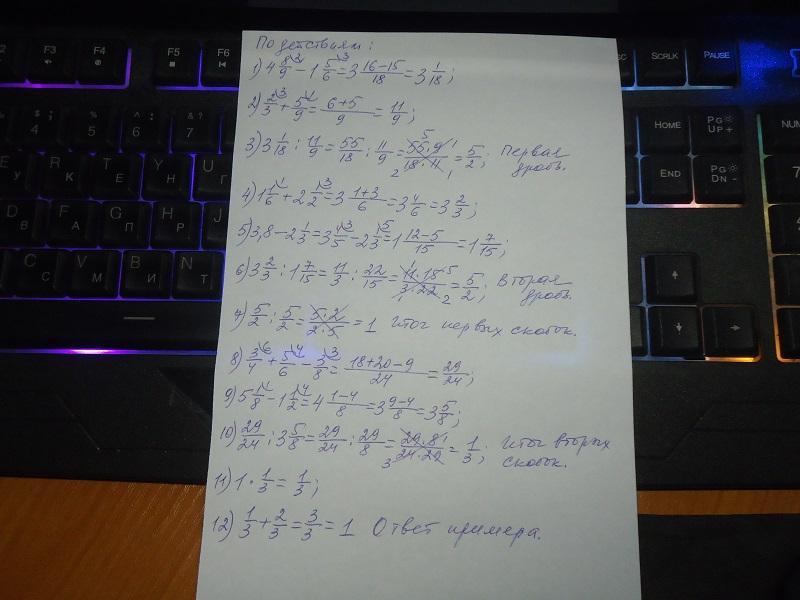 По действиям:
1) 4 8/9 - 1 5/6 = 3 16-15/18 = 3 1/18;
2) 2/3 + 5/9 = 6+5/9 = 11/9;
3) 3 1/18 : 11/9 = 55/18 : 11/9 = 55·9/18·11 = 5/2; Первая дробь.
4) 1 1/6 + 2 1/2 = 3 1+3/6 = 3 4/6 = 3 2/3;
5) 3,8 - 2 1/3 = 3 4/5 - 2 1/3 = 1 12-5/15 = 1 7/15;
6) 3 2/3 : 1 7/15 = 11/3 : 22/15 = 11·15/3·22 = 5/2; Вторая дробь.
7) 5/2 : 5/2 = 5·2/2·5 = 1 Итог первых скобок.
8) 3/4 + 5/6 - 3/8 = 18+20-9/24 = 29/24;
9) 5 1/8 - 1 1/2 = 4 1-4/8 = 3 9-4/8 = 3 5/8;
10) 29/24 : 3 5/8 = 29/24 : 29/8 = 29·8/24·29 = 1/3; Итог вторых скобок.
11) 1 · 1/3 = 1/3;
12) 1/3 + 2/3 = 3/3 = 1 Ответ примера.
F3
F4
F5
F6
SCRLK
PAUSE
HOME
PG UP
END
PG DN
NUM